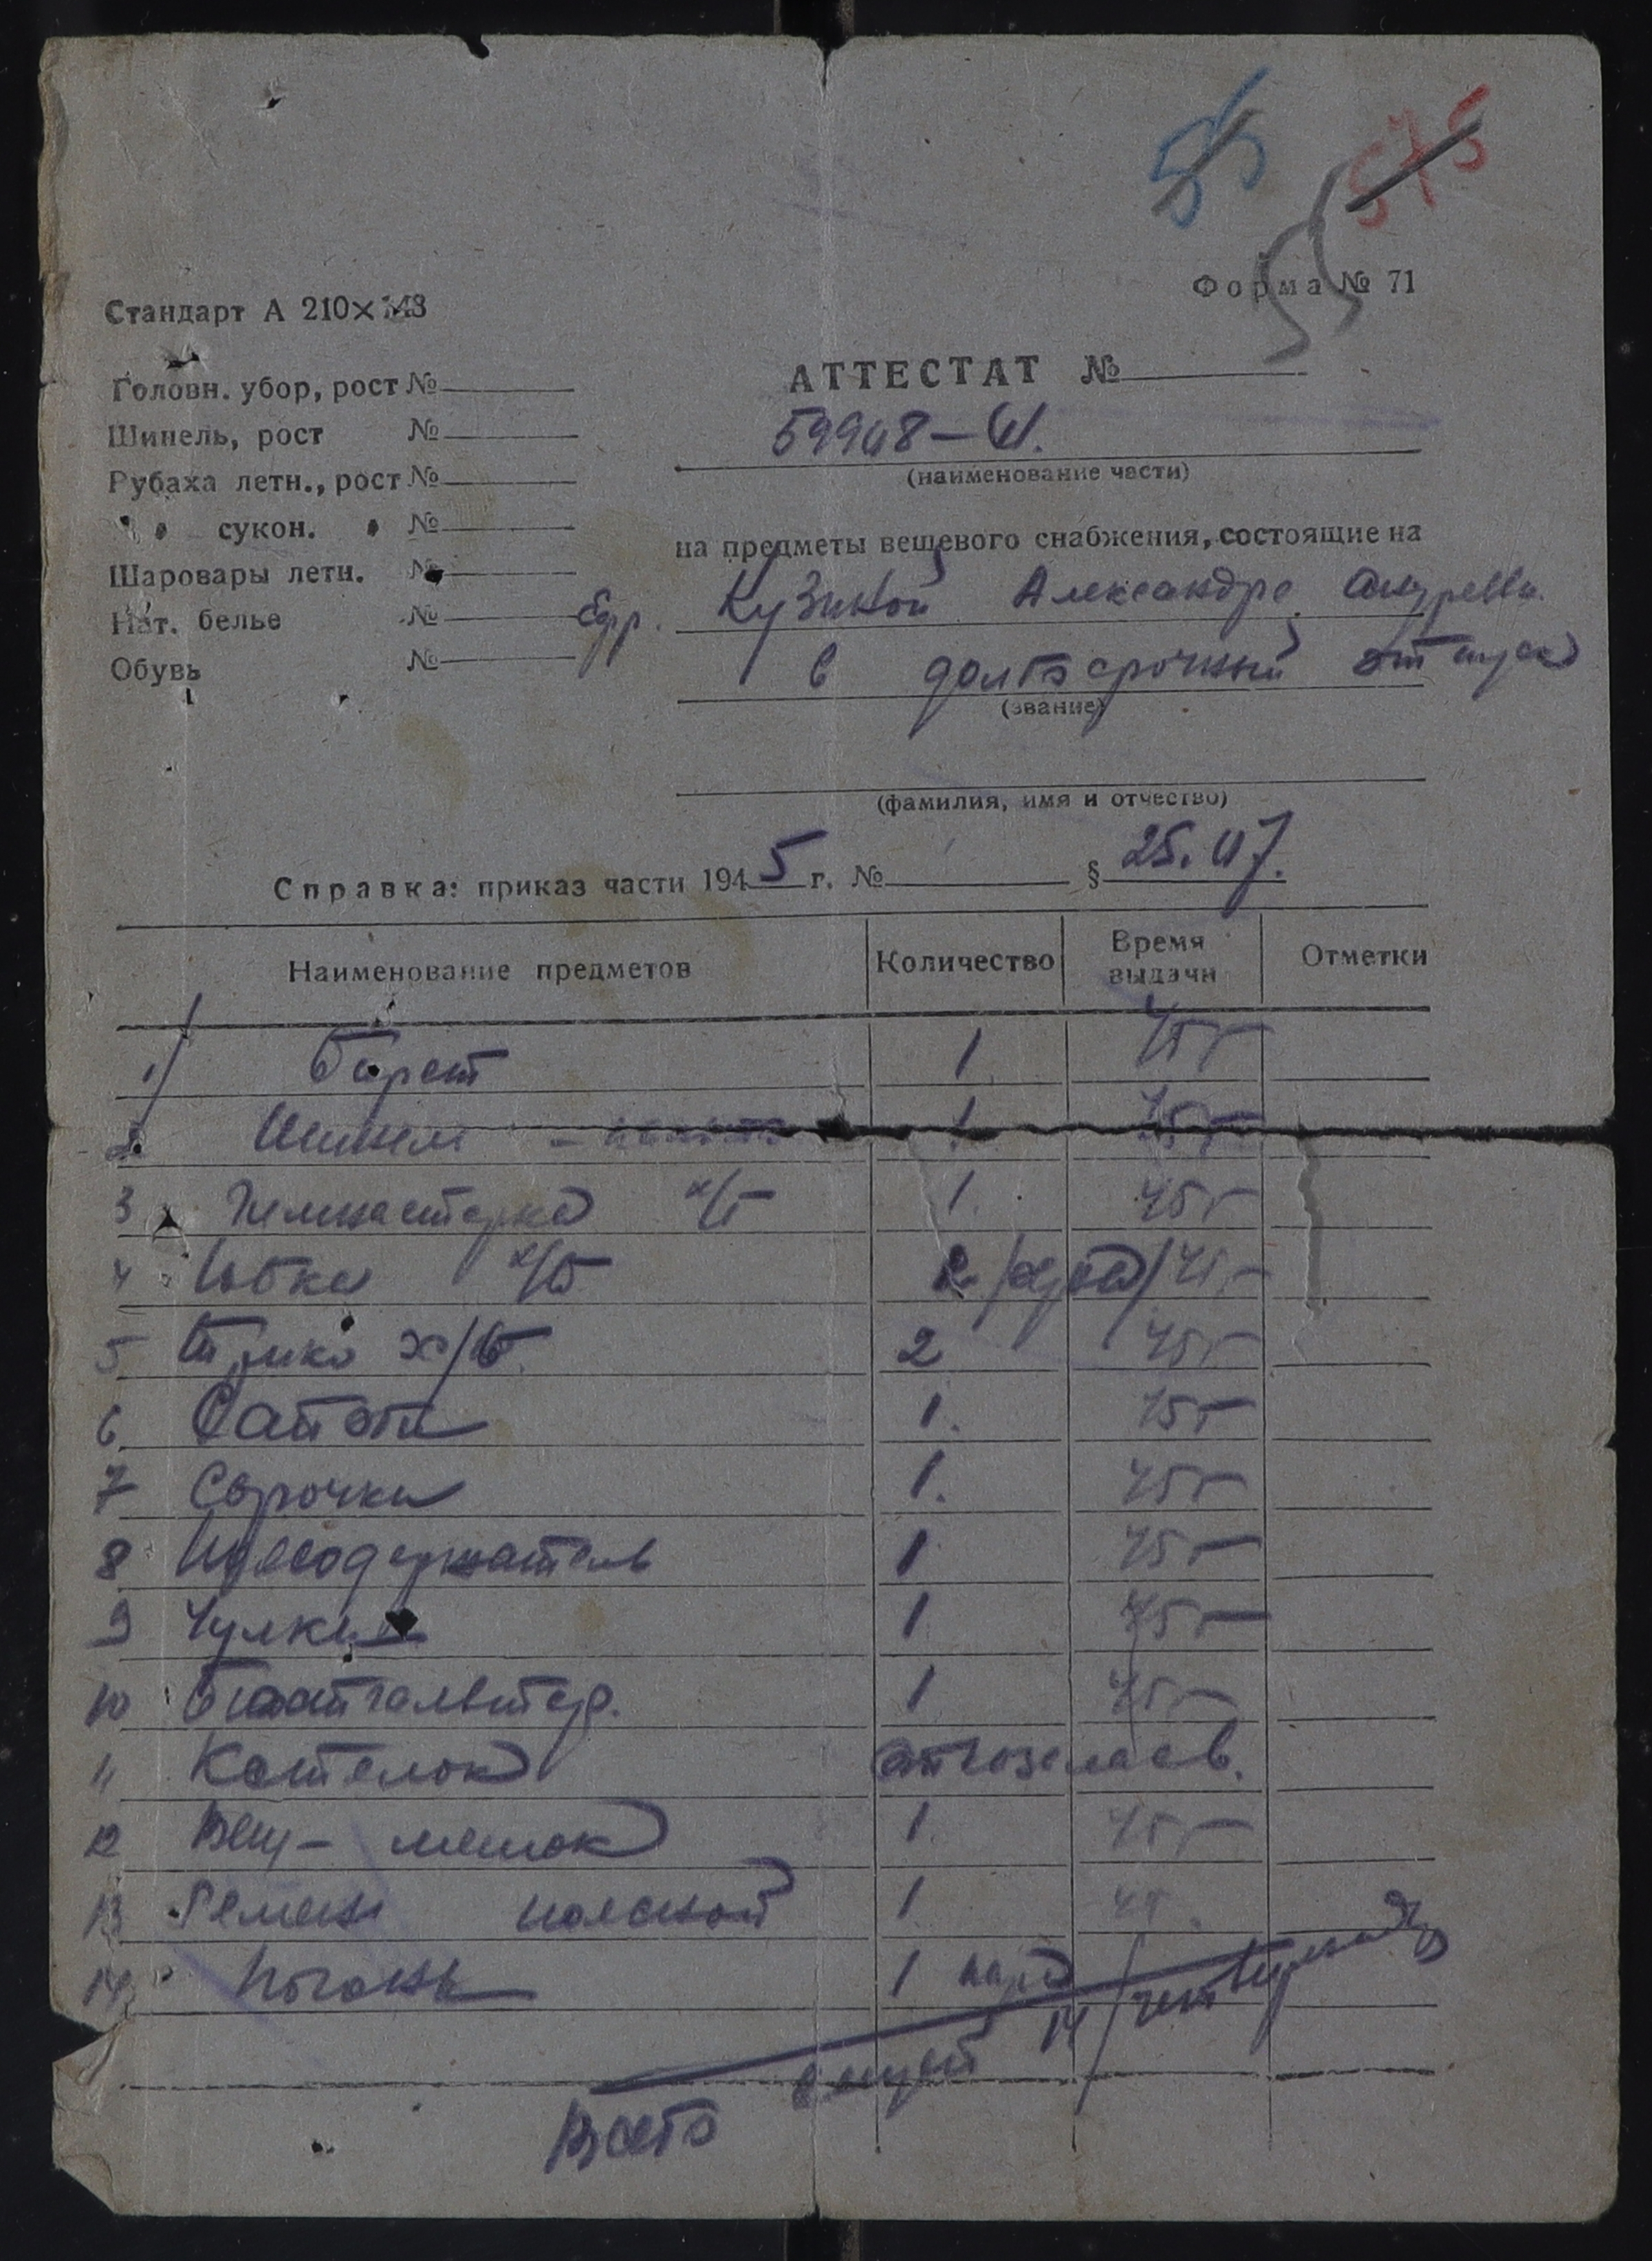 55
575
55
Форма № 71
Стандарт А 210×148
Головн. убор, рост №
Шинель, рост №
Рубаха летн., рост №
" " сукон. " №
Шаровары летн. №
Нат. белье №
Обувь №
АТТЕСТАТ №
59948-И.
(наименование части)
на предметы вещевого снабжения, состоящие на
Ефр. Кузиной Александре Андреевн.
в долгосрочный отпуск
(звание)
(фамилия, имя и отчество)
Справка: приказ части 1945 г. № § 25.07.
Наименование предметов Количество Время выдачи Отметки
1/ Барет 1 45 г
2. Шинель - 1 45 г
3 Гимнастерка х/б 1. 45 г
4 Юбка х/б 45 г
5 Трико х/б. 2 45 г
6 Сапоги 1. 45 г
7 Сорочка 1. 45 г
8 Поясодержатель 1 45 г
9 Чулки 1 45 г
10 Бюстгальтер. 1 45 г
11 Котелок
12 Вещ-мешок 1. 45 г
13 Ремень поясной 1. 45.
14 Погоны 1 пара
Всего вещей 14 /четырнадц